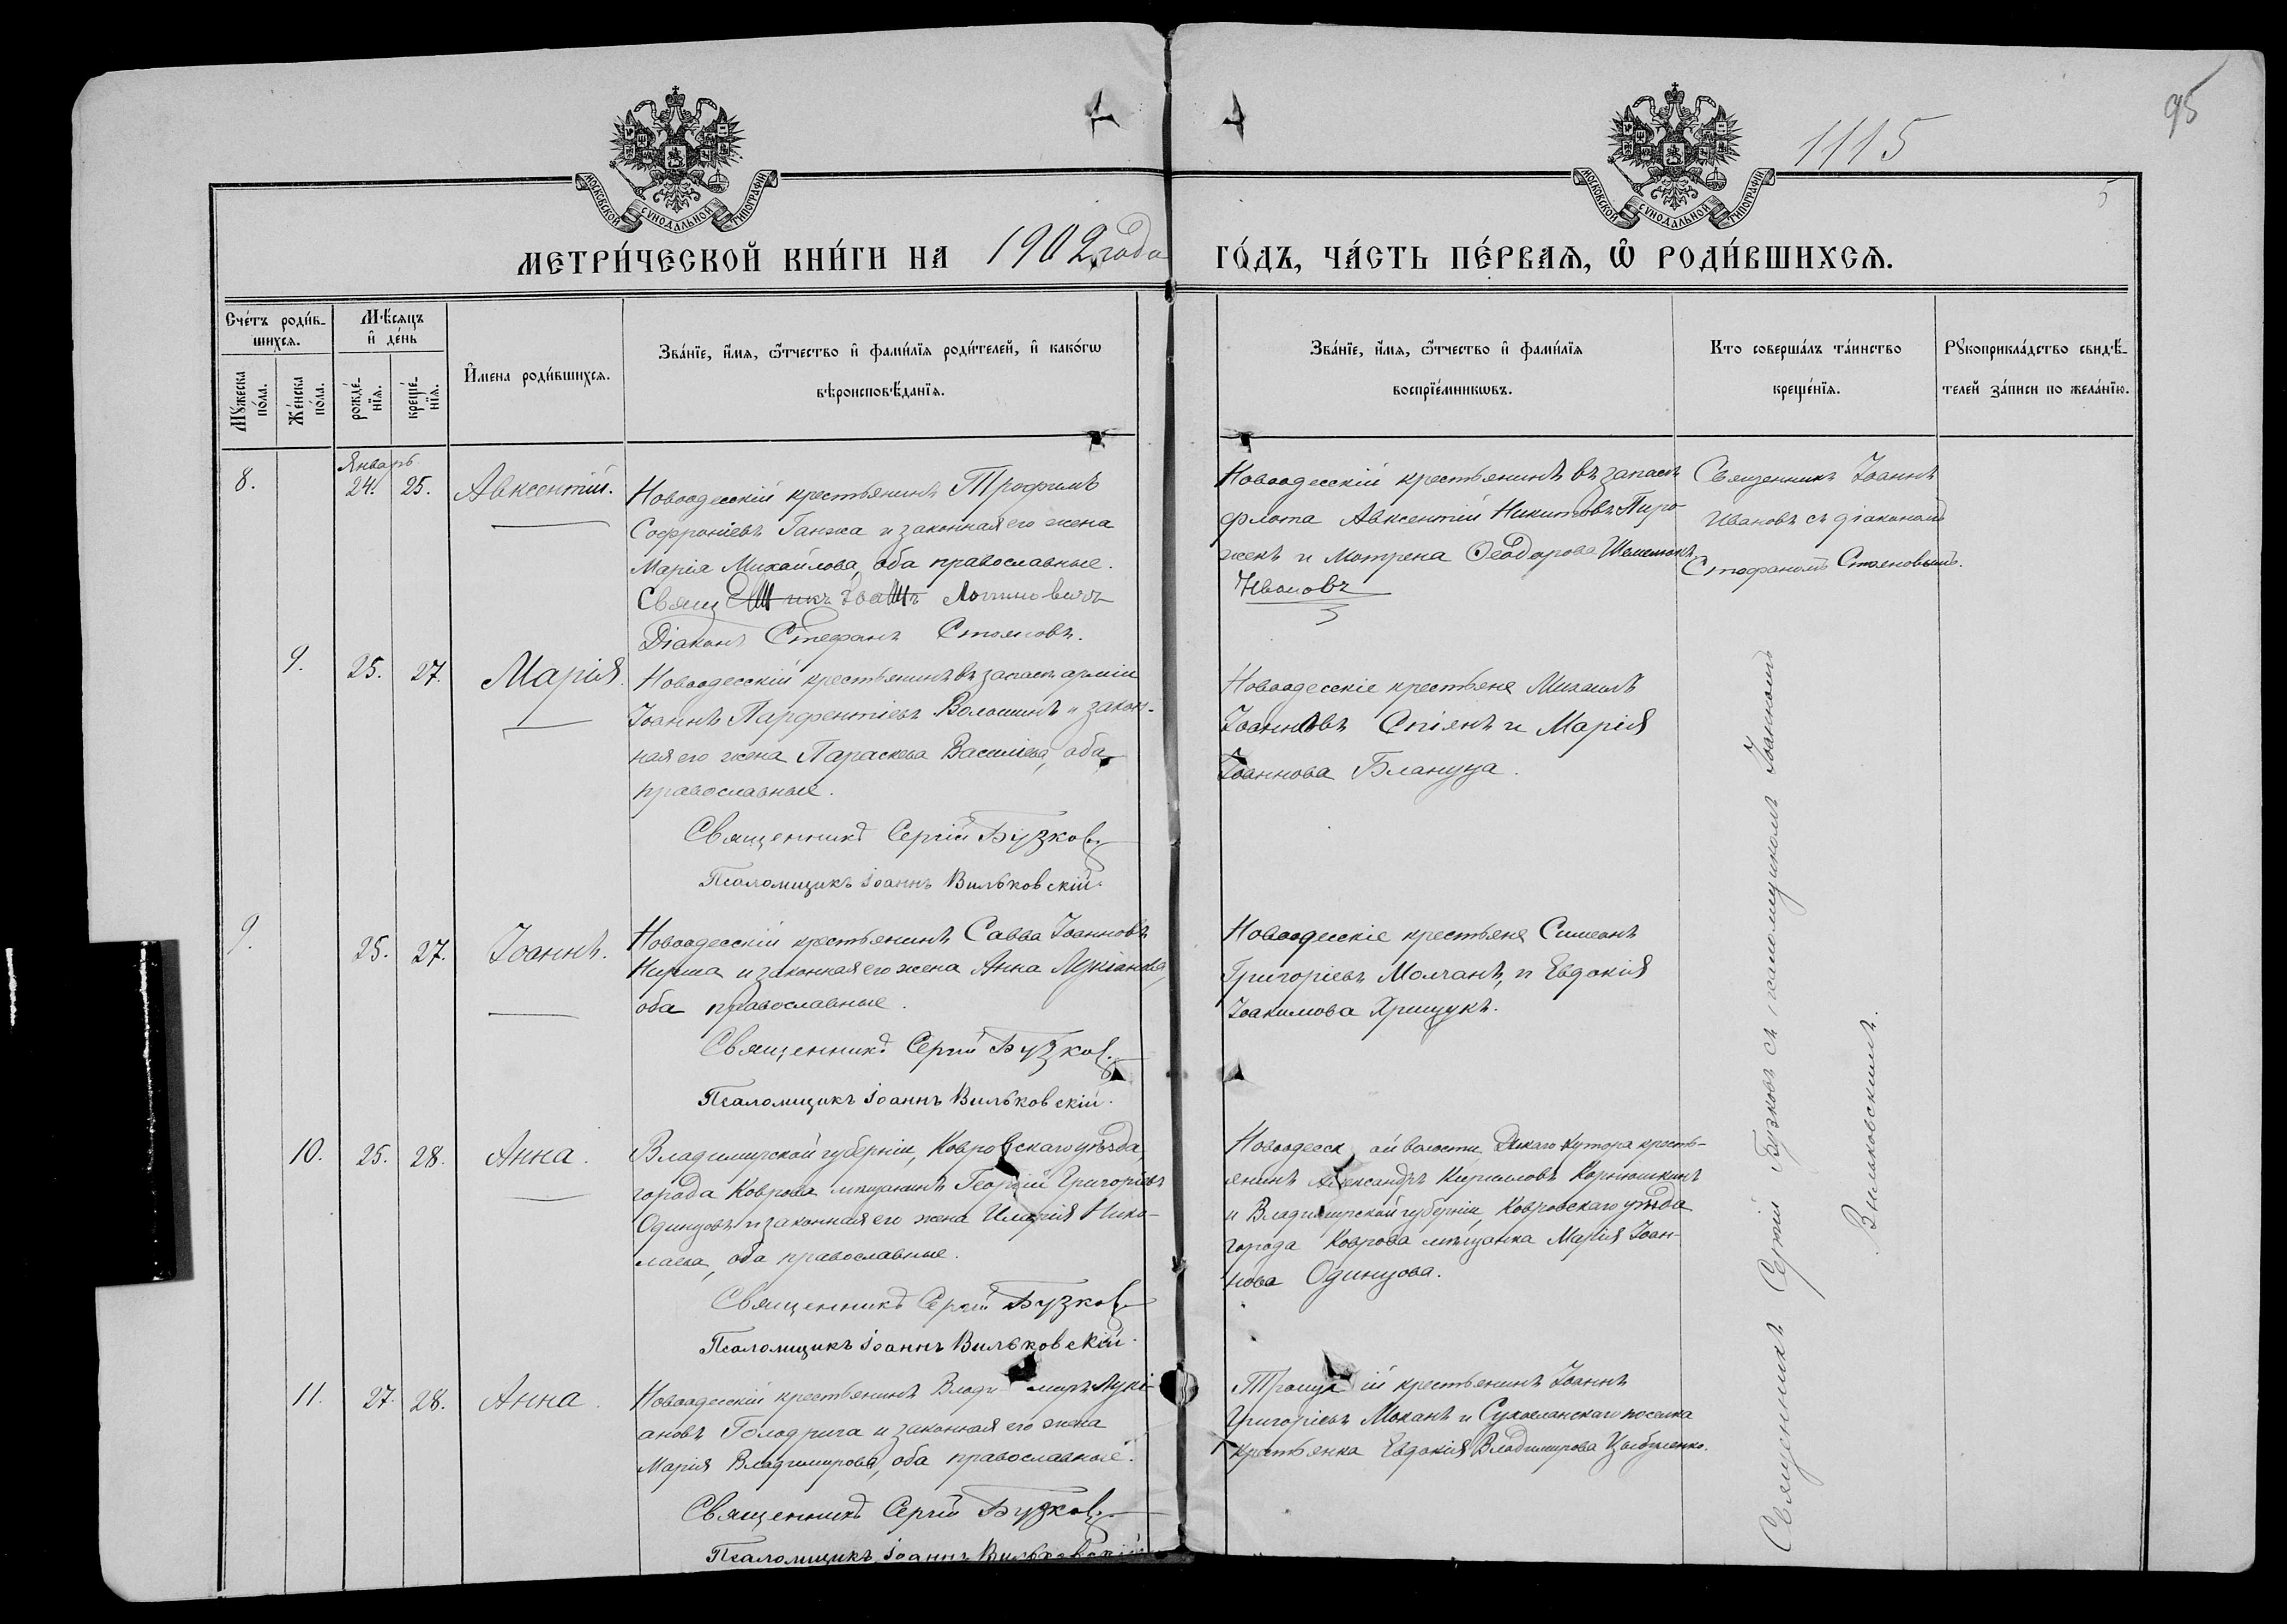 95
1115
5
МОСКОВСКОЙ СѴНОДАЛЬНОЙ ТИПОГРАФІИ
МОСКОВСКОЙ СѴНОДАЛЬНОЙ ТИПОГРАФІИ
МЕТРИ́ЧЕСКОЙ КНИ́ГИ НА 1902 года ГО́ДЪ, ЧА́СТЬ ПЕ́РВАѦ, Ѡ҆ РОДИ́ВШИХСѦ.
Сче́тъ роди́в-
шихсѧ.
Мꙋ́жеска по́ла.
Же́нска по́ла.
Мѣ́сѧцъ и҆ де́нь
рожде́-нїѧ.
креще́-нїѧ.
И҆мена роди́вшихсѧ.
Зва́нїе, и҆́мѧ, ѻ҆́тчество и҆ фами́лїѧ роди́телей, и҆ како́гѡ
вѣроисповѣ́данїѧ.
Зва́нїе, и҆́мѧ, ѻ҆́тчество и҆ фами́лїѧ
воспрїе́мникѡвъ.
Кто соверша́лъ та́инство
креще́нїѧ.
Рꙋкоприкла́дство свидѣ́-
телей за́писи по жела́нїю.
Январь
8. 24. 25. Авксентій.
Новоодесскій крестьянинъ Трофимъ
Софроніевъ Ганжа и законная его жена
Марія Михайлова, оба православные.
Діаконъ Стефанъ Стояновъ.
Новоодесскій крестьянинъ въ запасѣ
флота Авксентій Никитовъ Пиро-
жекъ и Мотрена Ѳеодорова
Ивановъ
Священникъ Іоаннъ
Ивановъ съ діакономъ
Стефаномъ Стояновымъ.
9. 25. 27. Марія.
Новоодесскій крестьянинъ въ запасѣ арміи
Іоаннъ Парфентіевъ Волошинъ и закон-
ная его жена Параскева Василіева, оба
православные.
Священникъ Сергій Бузковъ
Псаломщикъ Іоаннъ Вильковскій.
Новоодесскіе крестьяне Михаилъ
Іоанновъ Спіянъ и Марія
Іоаннова Блануца.
9. 25. 27. Іоаннъ.
Новоодесскій крестьянинъ Савва Іоанновъ
Кирша и законная его жена Анна Лукіанова,
оба православные.
Священникъ Сергій Бузковъ
Псаломщикъ Іоаннъ Вильковскій.
Новоодесскіе крестьяне Симеонъ
Григоріевъ Молчанъ, и Евдокія
Іоакимова Хрищукъ.
10. 25. 28. Анна.
Владимирской губерніи, Ковровскаго уѣзда,
города Коврова мѣщанинъ Георгій Григоріевъ
Одинцовъ и законная его жена Нико-
лаева, оба православные.
Священникъ Сергій Бузковъ
Псаломщикъ Іоаннъ Вильковскій.
Новоодесской волости, Дикаго хутора кресть-
янинъ Александръ Кирилловъ Корнюшкинъ
и Владимирской губерніи, Ковровскаго уѣзда
города Коврова мѣщанка Марія Іоан-
нова Одинцова.
11. 27. 28. Анна.
Новоодесскій крестьянинъ Владимиръ Лукі-
ановъ Голодрига и законная его жена
Марія Владимирова, оба православные.
Священникъ Сергій Бузковъ
Псаломщикъ Іоаннъ Вильковскій
Троицкій крестьянинъ Іоаннъ
Григоріевъ Моканъ и Сухоеланскаго поселка
крестьянка Евдокія Владимирова Цыбуленко.
Священникъ Сергій Бузковъ съ псаломщикомъ Іоанномъ
Вильковскимъ.